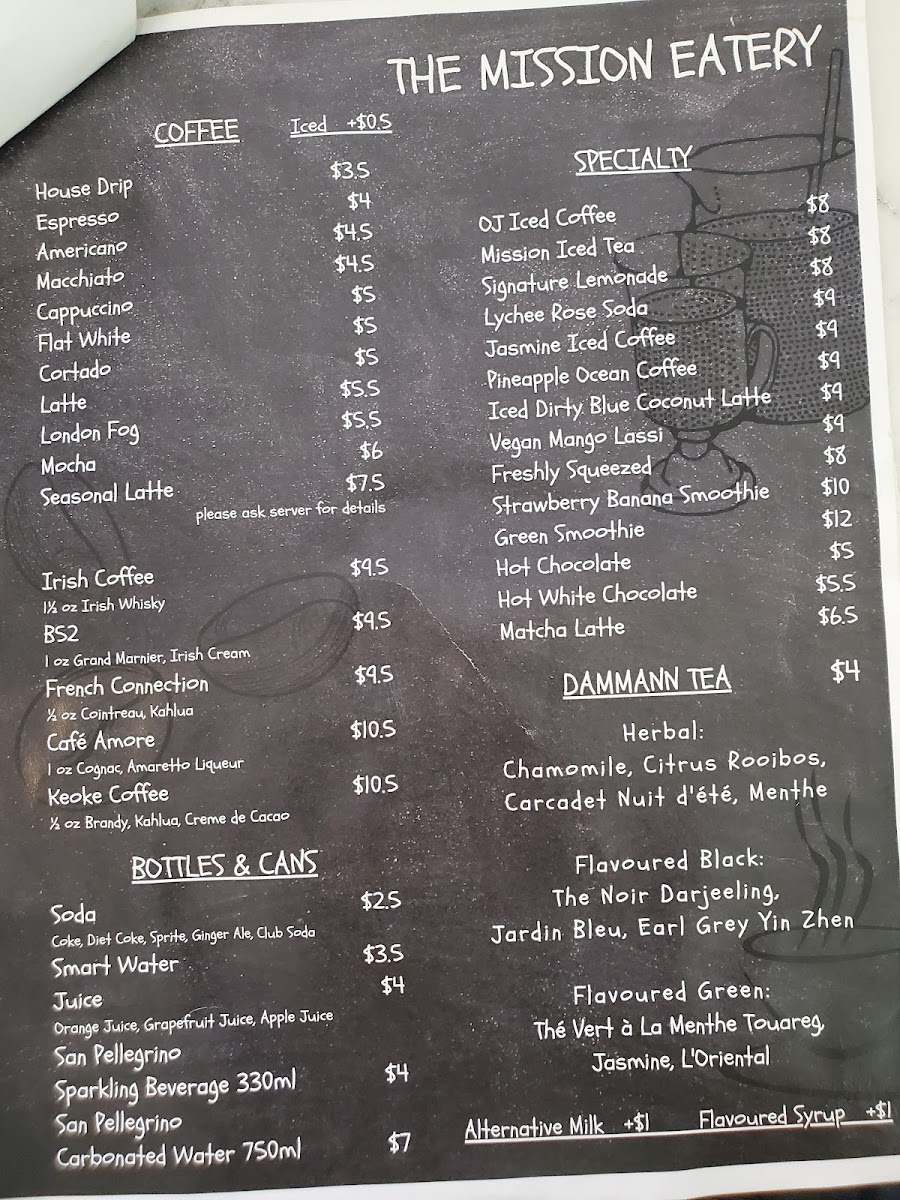 THE MISSION EATERY
COFFEE Iced +$0.5
House Drip $3.5
Espresso $4
Americano $4.5
Macchiato $4.5
Cappuccino $5
Flat White $5
Cortado $5
Latte $5.5
London Fog $5.5
Mocha $6
Seasonal Latte $7.5
please ask server for details
Irish Coffee $9.5
1½ oz Irish Whisky
B52 $9.5
1 oz Grand Marnier, Irish Cream
French Connection $9.5
½ oz Cointreau, Kahlua
Café Amore $10.5
1 oz Cognac, Amaretto Liqueur
Keoke Coffee $10.5
½ oz Brandy, Kahlua, Creme de Cacao
BOTTLES & CANS
Soda $2.5
Coke, Diet Coke, Sprite, Ginger Ale, Club Soda
Smart Water $3.5
Juice $4
Orange Juice, Grapefruit Juice, Apple Juice
San Pellegrino
Sparkling Beverage 330ml $4
San Pellegrino
Carbonated Water 750ml $7
SPECIALTY
OJ Iced Coffee $8
Mission Iced Tea $8
Signature Lemonade $8
Lychee Rose Soda $9
Jasmine Iced Coffee $9
Pineapple Ocean Coffee $9
Iced Dirty Blue Coconut Latte $9
Vegan Mango Lassi $9
Freshly Squeezed $8
Strawberry Banana Smoothie $10
Green Smoothie $12
Hot Chocolate $5
Hot White Chocolate $5.5
Matcha Latte $6.5
DAMMANN TEA $4
Herbal:
Chamomile, Citrus Rooibos,
Carcadet Nuit d'été, Menthe
Flavoured Black:
The Noir Darjeeling,
Jardin Bleu, Earl Grey Yin Zhen
Flavoured Green:
Thé Vert à La Menthe Touareg,
Jasmine, L'Oriental
Alternative Milk +$1 Flavoured Syrup +$1